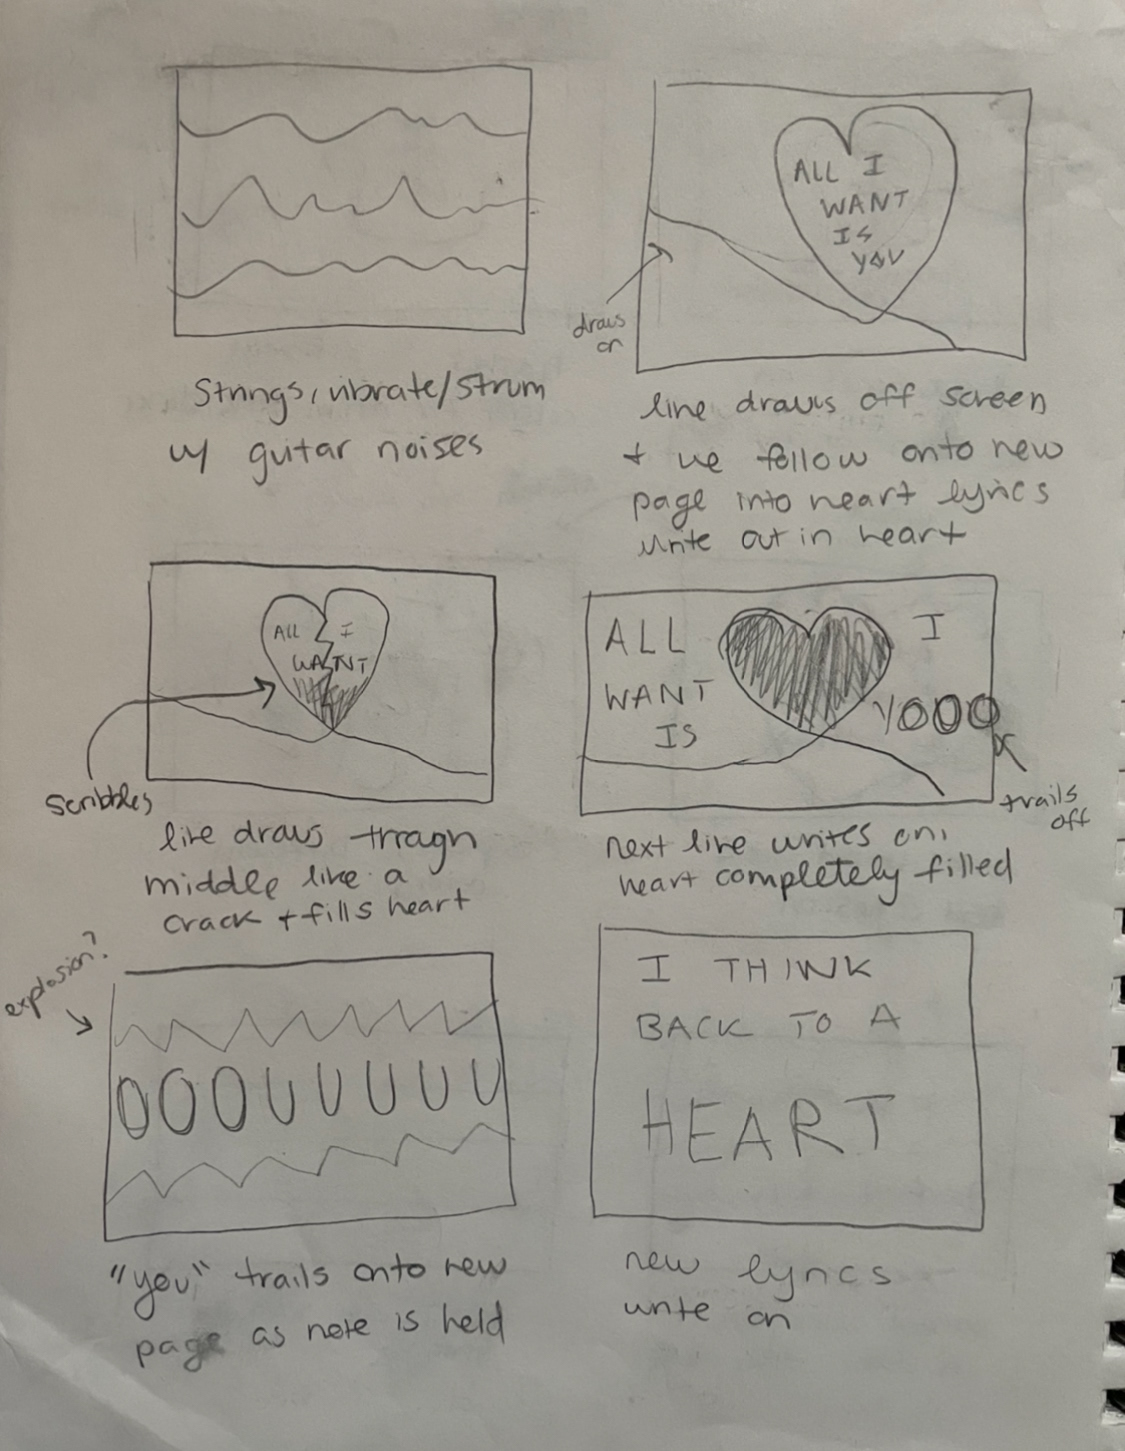 Strings, vibrate/strum
w/ guitar noises
ALL I
WANT
IS
YOU
draws
on
line draws off screen
+ we follow onto new
page into heart lyrics
write out in heart
ALL I
WANT
scribbles
line draws through
middle like a
crack + fills heart
ALL I
WANT
IS
YOOO
trails
off
next line writes on,
heart completely filled
explosion?
OOOUUUUU
"you" trails onto new
page as note is held
I THINK
BACK TO A
HEART
new lyrics
write on